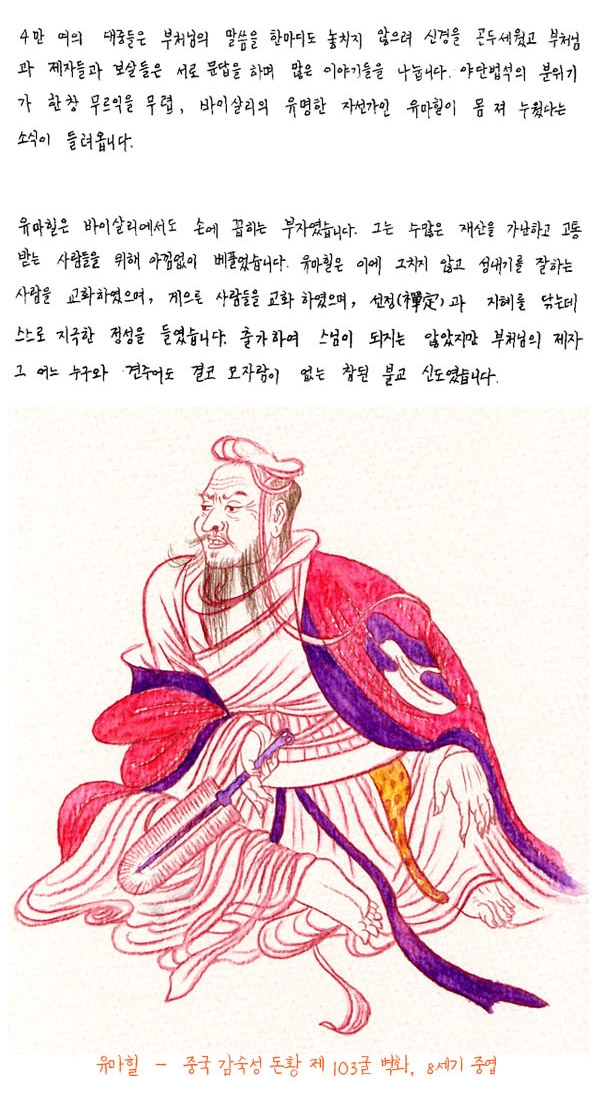 4만 여의 대중들은 부처님의 말씀을 한마디도 놓치지 않으려 신경을 곤두세웠고 부처님
과 제자들과 보살들은 서로 문답을 하며 많은 이야기들을 나눕니다. 야단법석의 분위기
가 한창 무르익을 무렵, 바이살리의 유명한 자선가인 유마힐이 몸 져 누웠다는
소식이 들려옵니다.
유마힐은 바이살리에서도 손에 꼽히는 부자였습니다. 그는 수많은 재산을 가난하고 고통
받는 사람들을 위해 아낌없이 베풀었습니다. 유마힐은 이에 그치지 않고 성내기를 잘하는
사람을 교화하였으며, 게으른 사람들을 교화 하였으며, 선정(禪定)과 지혜를 닦는데
스스로 지극한 정성을 들였습니다. 출가하여 스님이 되지는 않았지만 부처님의 제자
그 어느 누구와 견주어도 결코 모자람이 없는 참된 불교 신도였습니다.
유마힐 - 중국 감숙성 돈황 제 103굴 벽화, 8세기 중엽